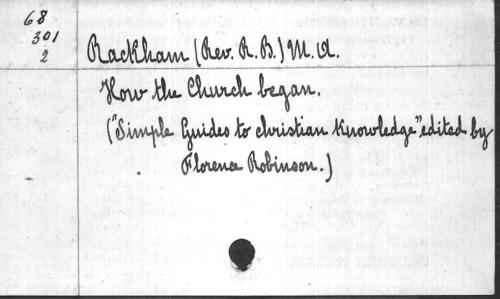 68
301
2
Rackham (Rev. R. B.) M. A.
How the Church began.
("Simple Guides to christian knowledge" edited by
Florence Robinson.)